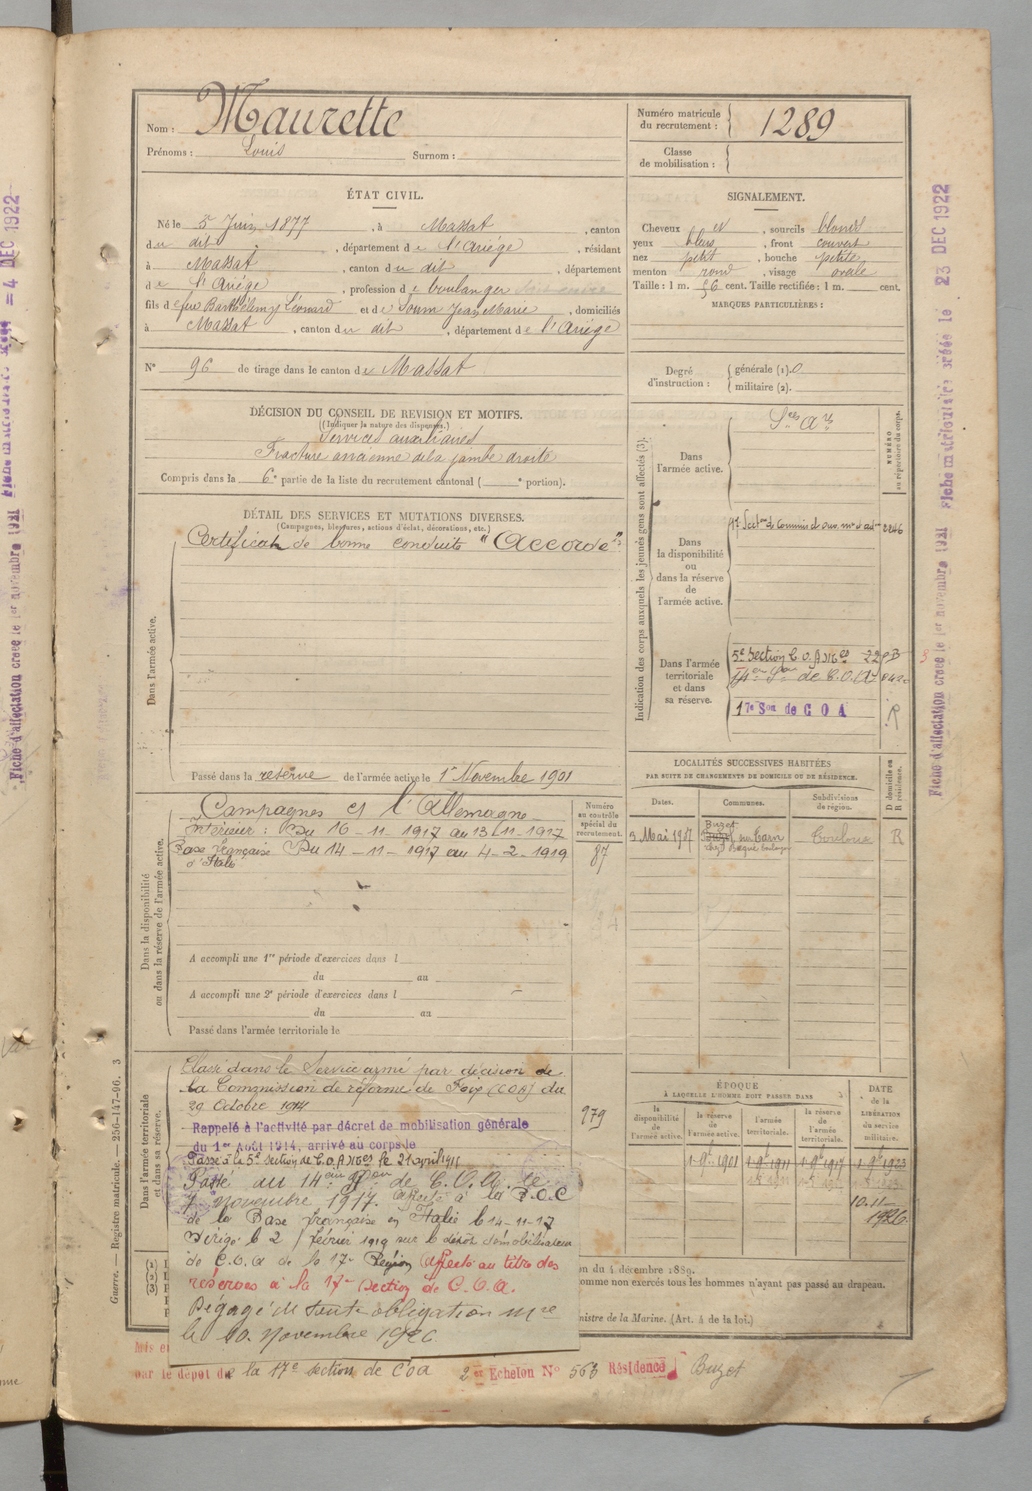 Nom : Maurette
Prénoms : Louis Surnom :
Numéro matricule du recrutement : 1289
Classe de mobilisation :
ÉTAT CIVIL.
Né le 5 Juin 1877, à Massat, canton
du dit, département de l'Ariége, résidant
à Massat, canton du dit, département
de l'Ariége, profession de boulanger
fils de feu Barthélemy Léonard et de Soum Jean Marie, domiciliés
à Massat, canton du dit, département de l'Ariége
N° 96 de tirage dans le canton de Massat
SIGNALEMENT.
Cheveux et, sourcils blonds
yeux bleus, front couvert
nez petit, bouche petite
menton rond, visage ovale
Taille : 1 m. 56 cent. Taille rectifiée : 1 m. cent.
MARQUES PARTICULIÈRES :
Degré d'instruction : générale (1). 0
militaire (2).
DÉCISION DU CONSEIL DE REVISION ET MOTIFS.
(Indiquer la nature des dispenses.)
Services auxiliaires
Fracture ancienne de la jambe droite
Compris dans la 6e partie de la liste du recrutement cantonal ( e portion).
DÉTAIL DES SERVICES ET MUTATIONS DIVERSES.
(Campagnes, blessures, actions d'éclat, décorations, etc.)
Certificat de bonne conduite "Accordé"
Dans l'armée active.
Passé dans la réserve de l'armée active le 1er Novembre 1901
Indication des corps auxquels les jeunes gens sont affectés (3).
NUMÉRO au répertoire du corps.
Dans l'armée active.
Dans la disponibilité ou dans la réserve de l'armée active.
Dans l'armée territoriale et dans sa réserve.
5e Section C.O.A
de C.O.A
17e Son de COA
R
LOCALITÉS SUCCESSIVES HABITÉES
PAR SUITE DE CHANGEMENTS DE DOMICILE OU DE RÉSIDENCE.
D domicile ou R résidence.
Dates. Communes. Subdivisions de région.
3 Mai 1917 Buzet sur Tarn Toulouse R
Dans la disponibilité ou dans la réserve de l'armée active.
Numéro au contrôle spécial du recrutement.
87
Campagnes ct l'Allemagne
Intérieur : Du 16-11-1917 au 13-11-1917
Base française Du 14-11-1917 au 4-2-1919
d'Italie
A accompli une 1re période d'exercices dans l
du au
A accompli une 2e période d'exercices dans l
du au
Passé dans l'armée territoriale le
Dans l'armée territoriale et dans sa réserve.
Classé dans le Service armé par décision de
la Commission de réforme de Foix (COA) du
29 Octobre 1914
979
Rappelé à l'activité par décret de mobilisation générale
du 1er Août 1914, arrivé au corps le
Passé à la 5e section de C.O.A
Passé au 14e de C.O.A. le
1 novembre 1917. Affecté à la B.O.C
de la Base française en Italie le 14-11-17
Dirigé le 2 février 1919 sur le dépôt démobilisateur
de C.O.A de la 17e Région Affecté au titre des
réserves à la 17e Section de C.O.A.
Dégagé de toute obligation mre
le 10 Novembre 1926
ÉPOQUE
À LAQUELLE L'HOMME DOIT PASSER DANS
la disponibilité de l'armée active.
la réserve de l'armée active.
l'armée territoriale.
la réserve de l'armée territoriale.
DATE de la LIBÉRATION du service militaire.
1 9bre 1901 1 9bre 1911 1 9bre 1917 1 9bre 1923
10-11-1926
on du 4 décembre 1889.
omme non exercés tous les hommes n'ayant pas passé au drapeau.
nistre de la Marine. (Art. 4 de la loi.)
Mis e
par le dépôt de la 17e section de COA 2e Echelon N° 563 Résidence Buzet
Guerre. — Registre matricule. — 256-147-96. 3
Fiche d'affectation créée le 1er novembre 1921 Fiche matriculaire créée le 23 DEC 1922
Fiche d'affectation créée le 1er novembre 1921 Fiche matriculaire créée = 4 DEC 1922